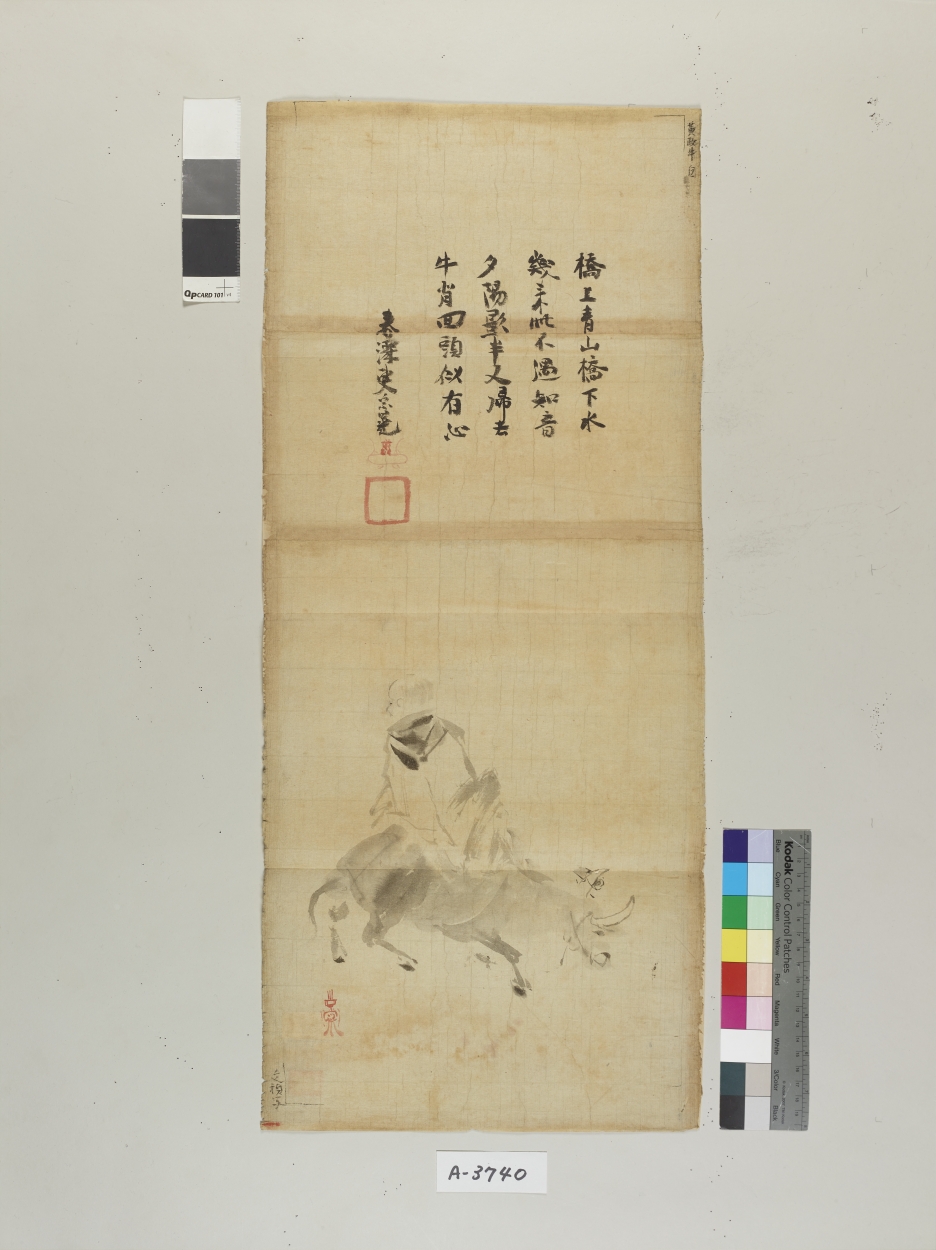 橋上青山橋下水
幾未此不遇知音
夕陽影半人帰去
牛肯回頭似有心
春澤叟宗
QPCARD 101
Kodak Color Control Patches
Blue
Cyan
Green
Yellow
Red
Magenta
White
3/Color
Black
A-3740